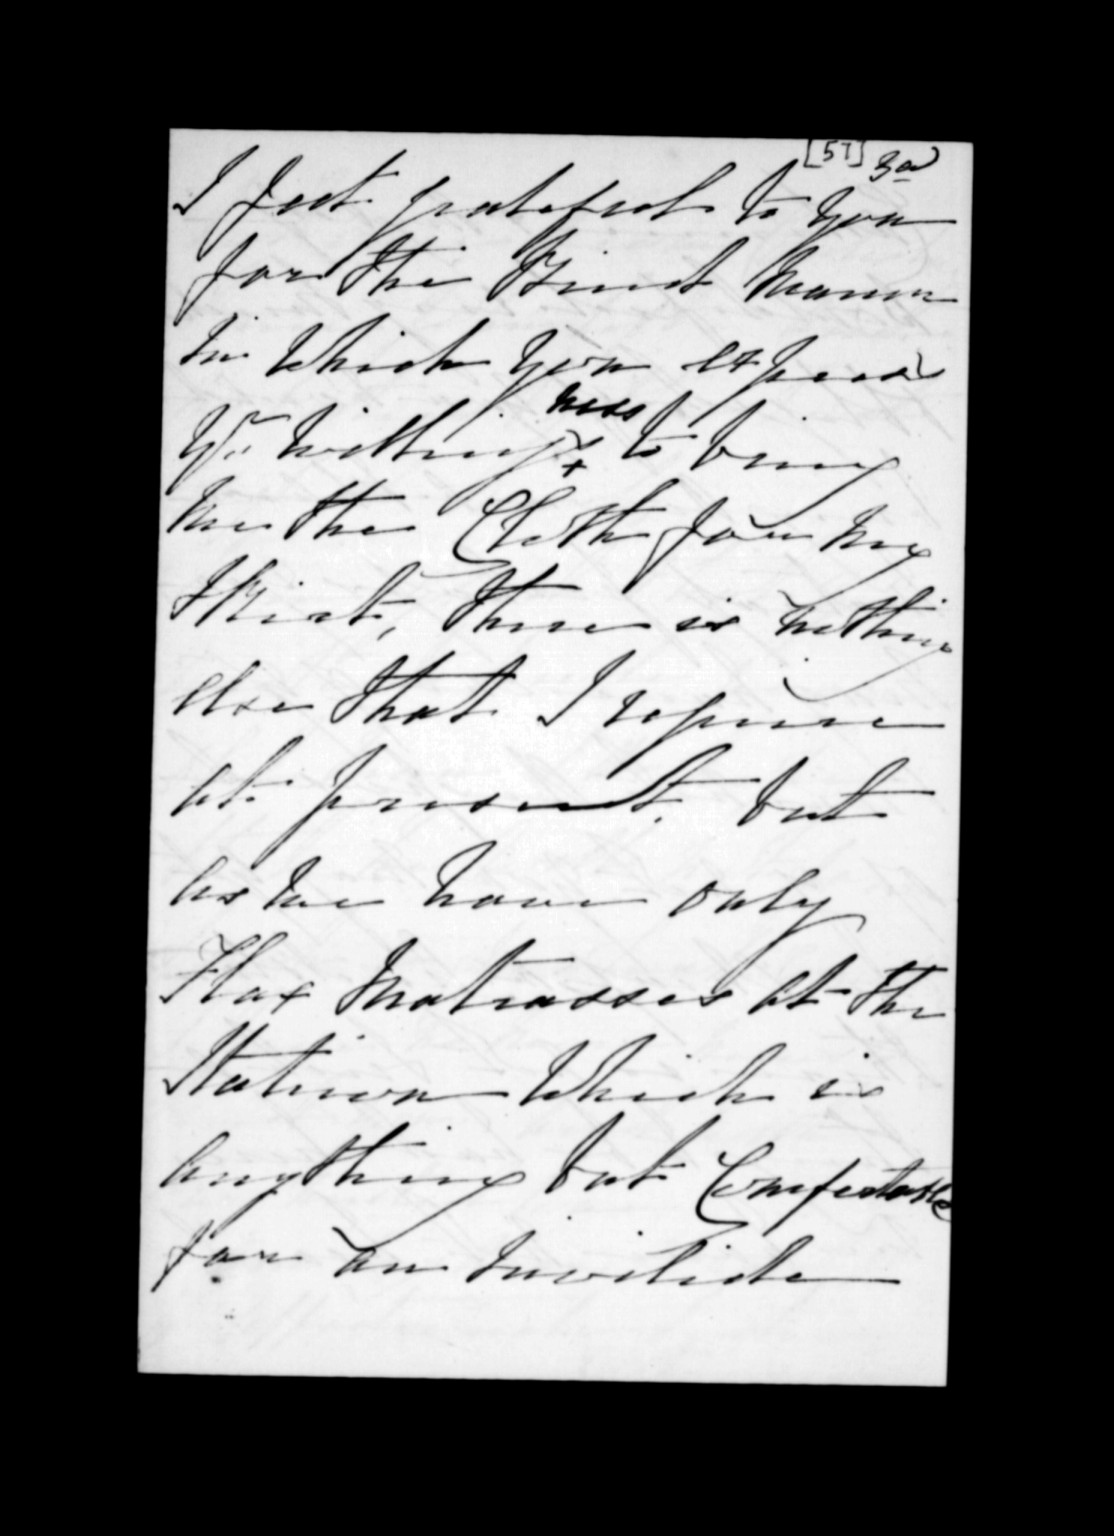 [57] 3a
I feel grateful to you
for the kind manner
in which you express
Yr. willing^ness to bring
me the Cloth for my
Skirt, there is nothing
else that I require
at present. but
as we have only
Flax Matrasses at the
Station which is
anything but Comfortable
for an invilide